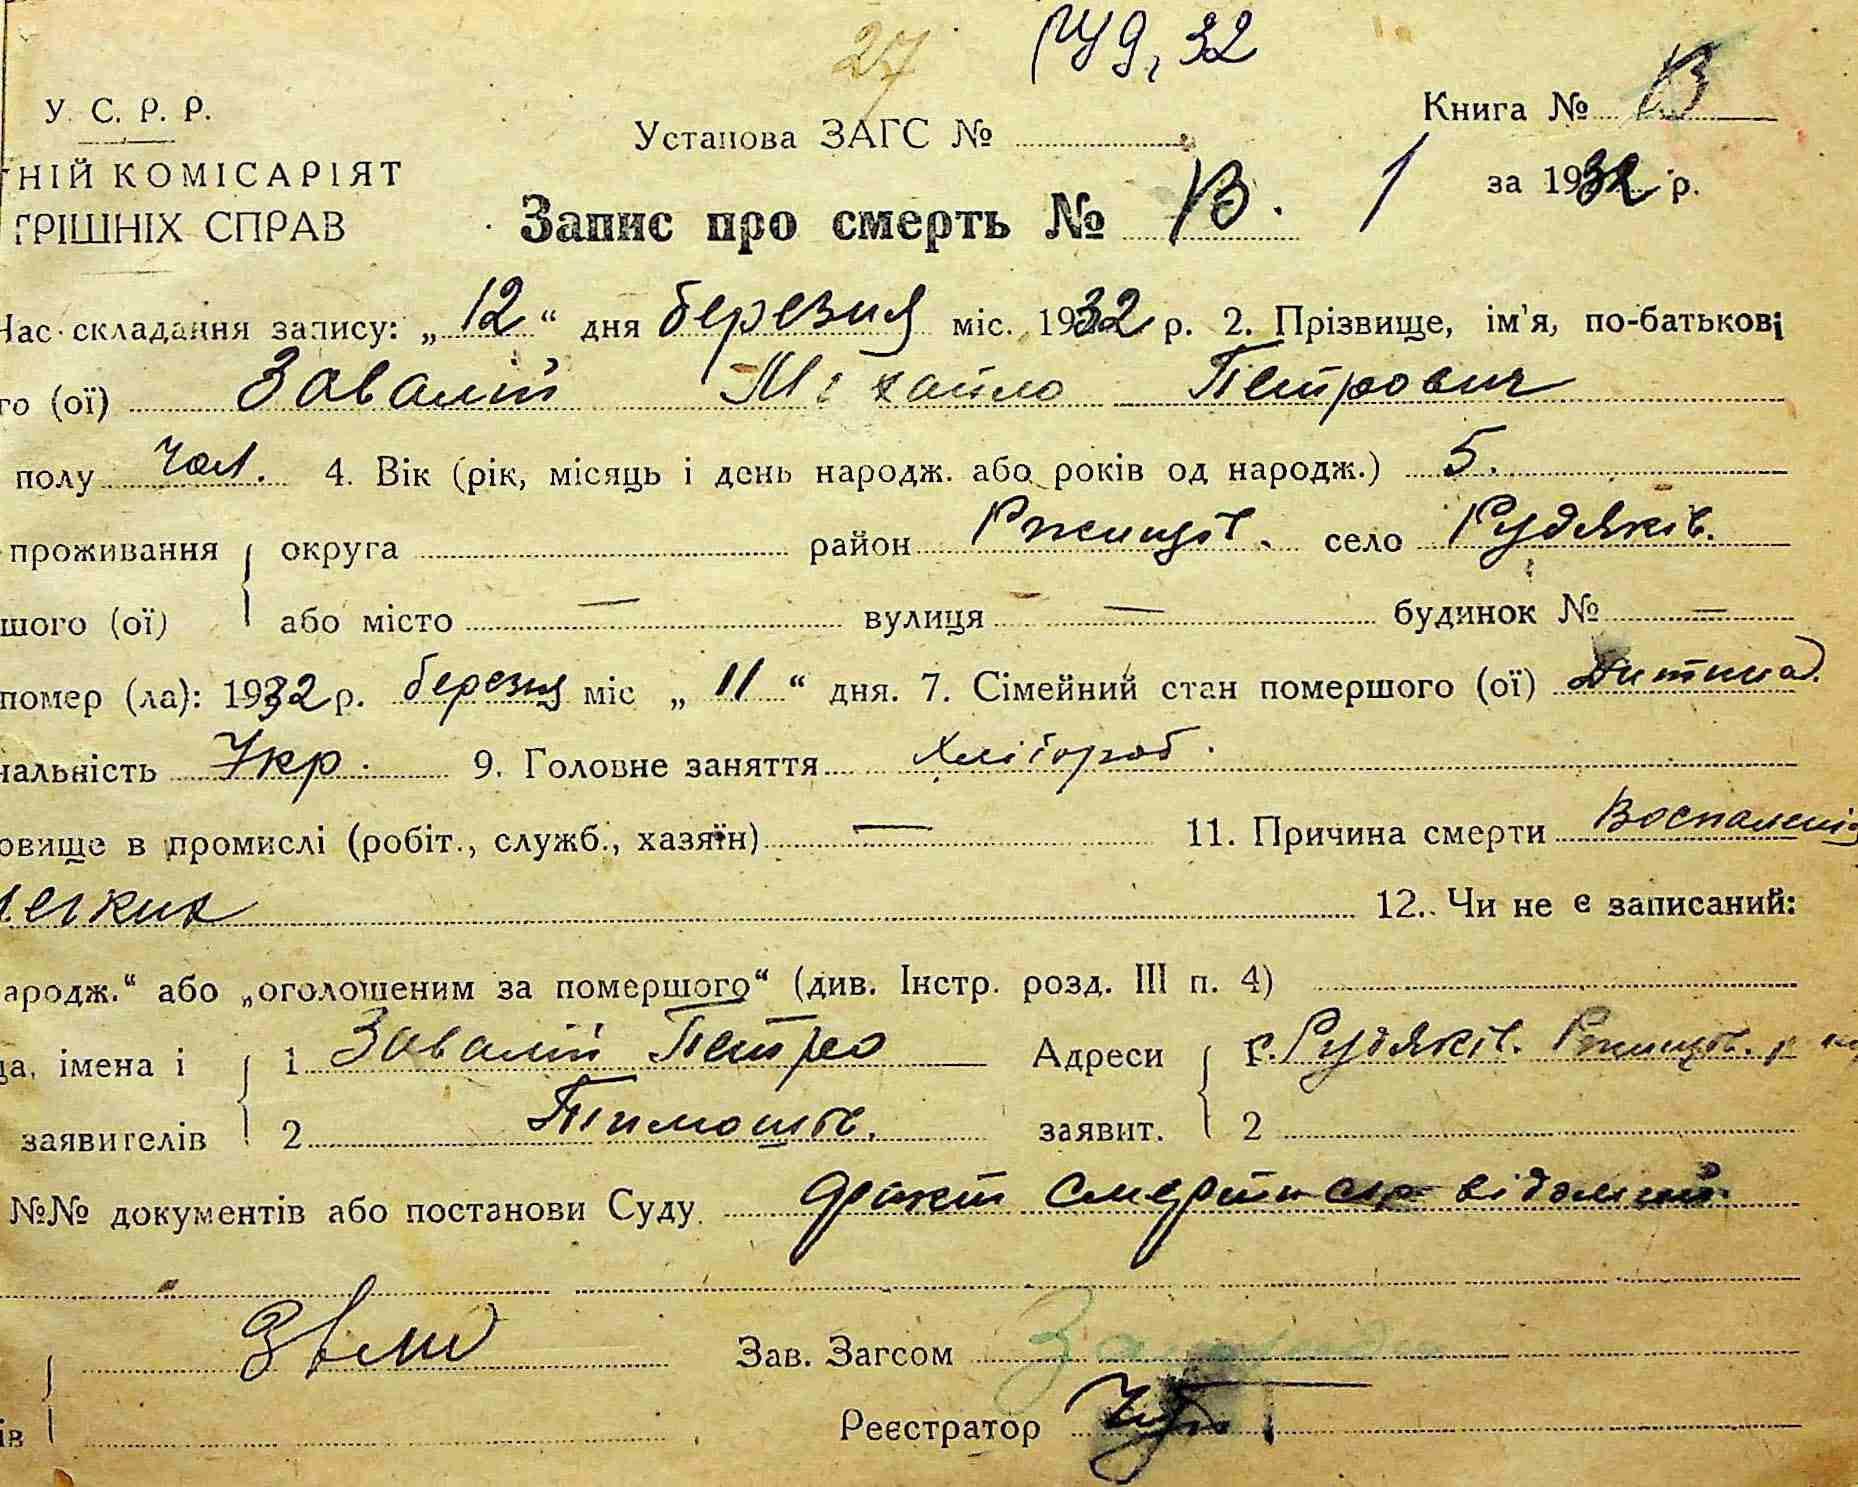 27 РУД, 32
У. С. Р. Р.
Установа ЗАГС №
Книга № В
НІЙ КОМІСАРІЯТ
за 1932 р.
ТРІШНІХ СПРАВ
Запис про смерть № В. 1
Час складання запису: „12“ дня березня міс. 1932 р. 2. Прізвище, ім’я, по-батькові
го (ої) Завалій Міхайло Петрович
полу чол. 4. Вік (рік, місяць і день народж. або років од народж.) 5.
проживання округа район Ржищів. село Рудяків.
шого (ої) або місто — вулиця — будинок № —
помер (ла): 1932 р. березня міс „11“ дня. 7. Сімейний стан помершого (ої) Дитина
нальність Укр. 9. Головне заняття Хлібороб.
овище в промислі (робіт., служб., хазяїн) — 11. Причина смерти Воспаленія
легких 12. Чи не є записаний:
ародж.“ або „оголошеним за помершого“ (див. Інстр. розд. III п. 4)
ща, імена і 1 Завалій Петро Адреси 1 с. Рудяків. Ржищів. р
заявителів 2 Тимошів. заявит. 2
№№ документів або постанови Суду факт смерти відомий
Зав. Загсом
ів Реєстратор